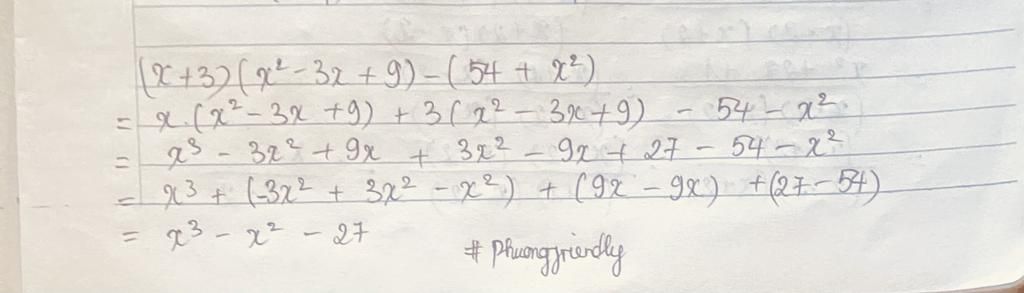 (x+3)(x² - 3x + 9) - (54 + x²)
= x.(x² - 3x + 9) + 3(x² - 3x + 9) - 54 - x²
= x³ - 3x² + 9x + 3x² - 9x + 27 - 54 - x²
= x³ + (-3x² + 3x² - x²) + (9x - 9x) + (27 - 54)
= x³ - x² - 27
# Phuongfriendly